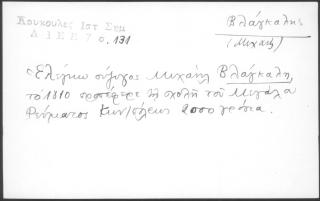 Κουκουλες Ιστ Σημ
ΔΙΕΕ 7 ο, 131
Βλάγκαλης
(Μιχαήλ)
Ελέγκω σύζυγος Μιχαήλ Βλάγκαλη,
τὸ 1810 προσέφερε τῇ σχολῇ τοῦ Μεγάλου
Ρεύματος Κων/πόλεως 2000 γρόσια.